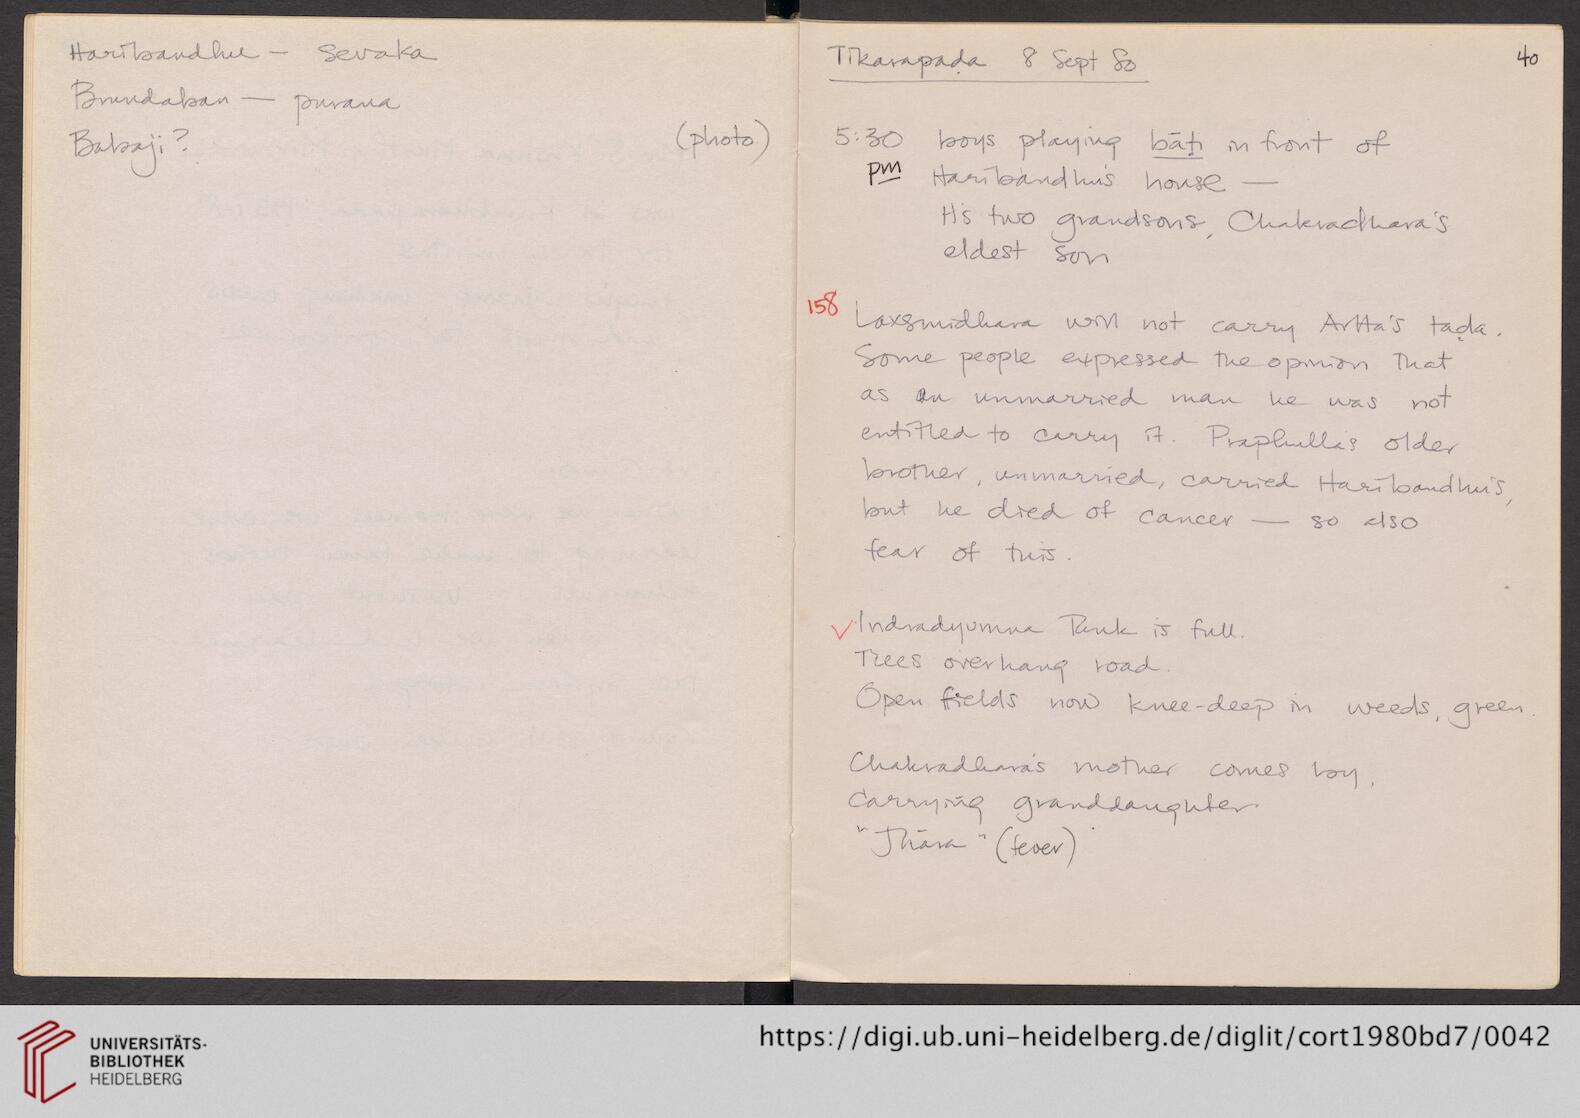 Haribandhu — sevaka
Brundaban — purana
Babaji?
(photo)
Tikarapaḍa 8 Sept 80
40
5:30 boys playing bāṭi in front of
pm Haribandhu's house —
His two grandsons, Chakradhara's
eldest son
158
Laxsmidhara will not carry Artta's taḍa.
Some people expressed the opinion that
as an unmarried man he was not
entitled to carry it. Praphulla's older
brother, unmarried, carried Haribandhu's,
but he died of cancer — so also
fear of this.
✓ Indradyumna Tank is full.
Trees overhang road.
Open fields now knee-deep in weeds, green.
Chakradhara's mother comes by,
carrying granddaughter.
"Jhāra" (fever)
UNIVERSITÄTS-
BIBLIOTHEK
HEIDELBERG
https://digi.ub.uni-heidelberg.de/diglit/cort1980bd7/0042